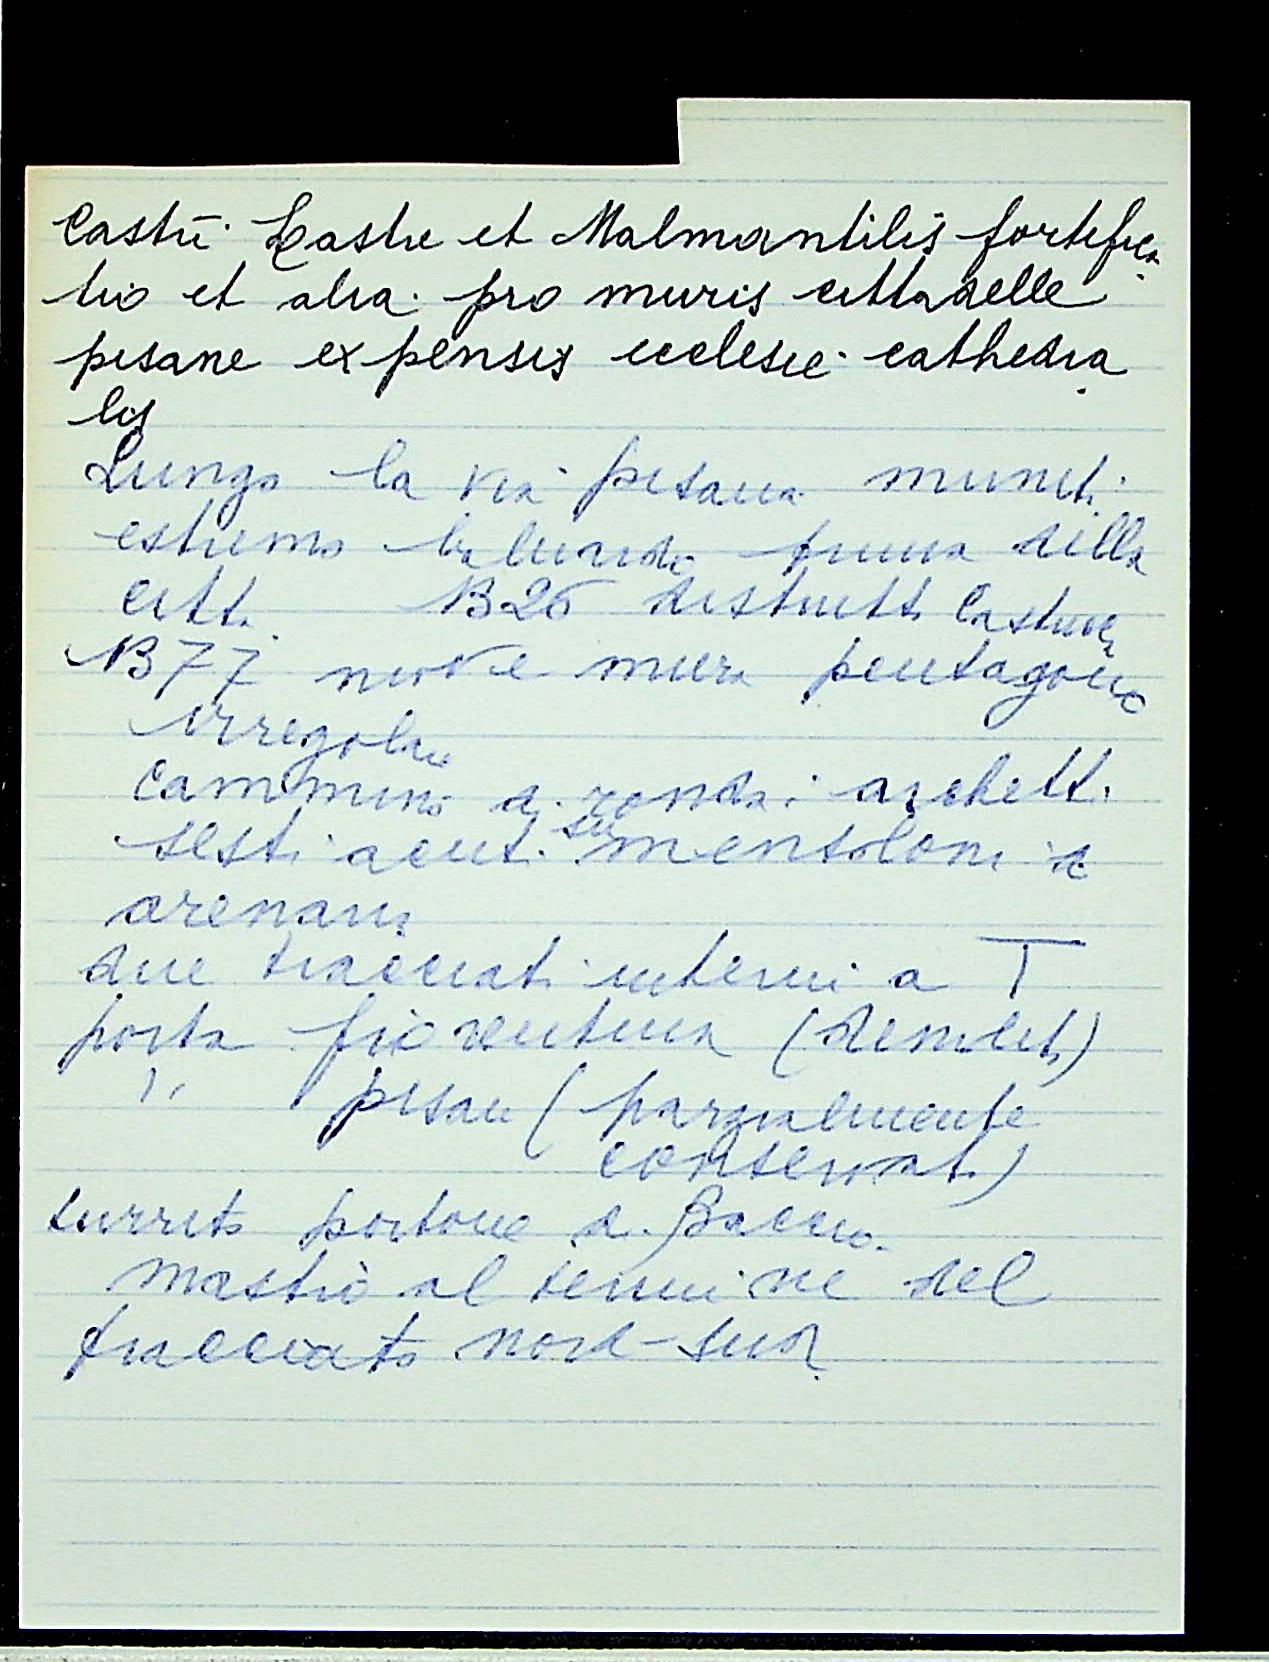 Castri Lastre et Malmantilis fortifica
tio et alia pro muris cittadelle
pisane expensis ecclesie cathedra
lis
Lungo la via pisana muniti
estremo baluardo prima della
citt. 1326 distrutti Castruc
1377 nuove mura pentagono
irregolare
cammino di ronda: archetti
sesti acuti su mensoloni d
arenaria
due tracciati interni a T
porta fiorentina (demolit)
" pisan (parzialmente
conservat.)
turrito portone di Baccio
mastio al termine del
tracciato nord-sud